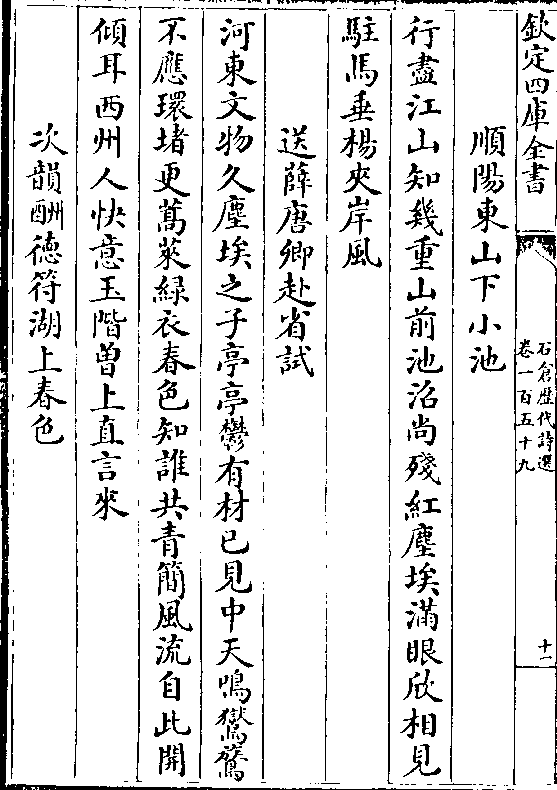 欽定四庫全書
石倉歴代詩選
卷一百五十九
十一
順陽東山下小池
行盡江山知幾重山前池沼尚殘紅塵埃滿眼欣相見
駐馬垂楊夾岸風
送薛唐卿赴省試
河東文物久塵埃之子亭亭鬱有材已見中天鳴鸑鷟
不應環堵更蒿萊緑衣春色知誰共青簡風流自此開
傾耳西州人快意玉階曽上直言來
次韻酬德符湖上春色